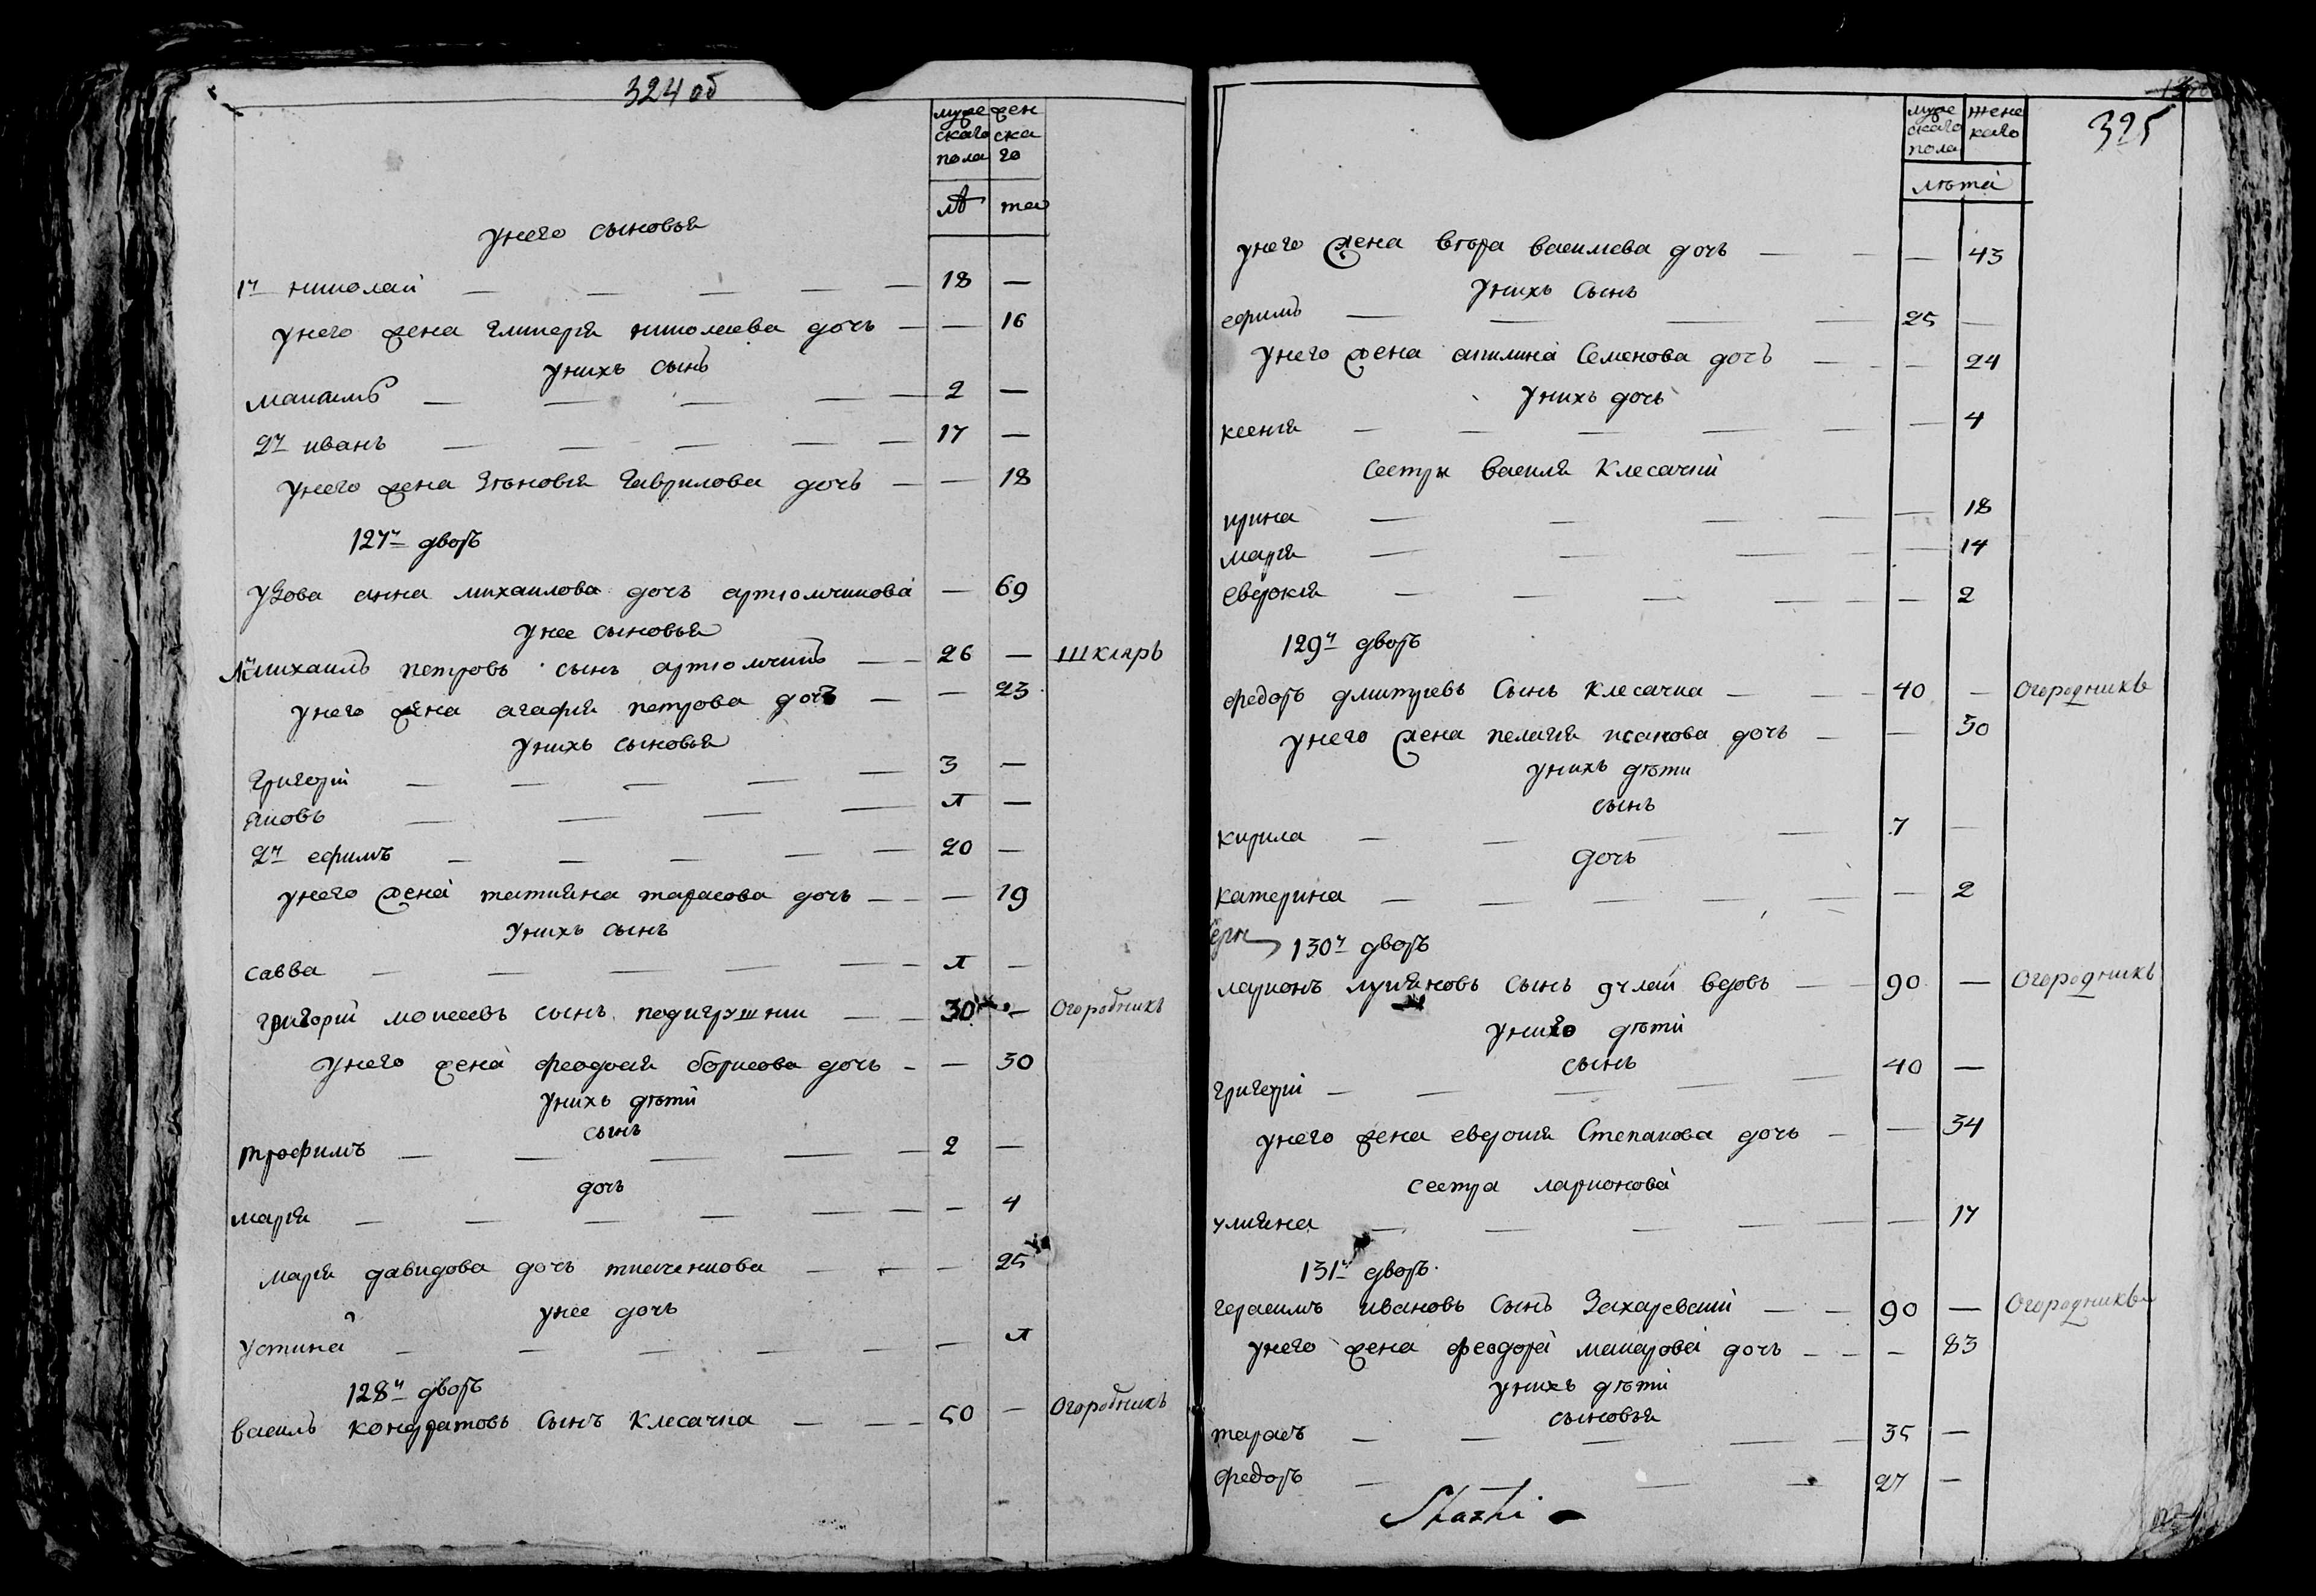 324 об
мужескаго пола женскаго
лѣ та
у него сыновья
1й николай — 18 —
у него жена гликерія николаева дочь — — 16
у нихъ сынъ
максимъ — 2 —
2й иванъ — 17 —
у него жена зѣновія гаврилова дочь — — 18
127й дворъ
удова анна михаилова дочь артюмчикова — 69
у нее сыновья
1й михаилъ петровъ сынъ артюмчикъ — 26 — шкляръ
у него жена агафия петрова дочъ — — 23
у нихъ сыновья
григорій — 3 —
яковъ — л —
2й ефимъ — 20 —
у него жена татияна тарасова дочь — — 19
у нихъ сынъ
савва — л —
григорій моисеевъ сынъ педигрушкии — 30 — Огородникъ
у него жена феодосія борисова дочь — — 30
у нихъ дѣти
сынъ
трофимъ — 2 —
дочь
марія — — 4
марія давидова дочь ткаченкова — — 25
у нее дочь
устина — — л
128й дворъ
василь кондратовъ сынъ клесачка — 50 — Огородникъ
325
мужескаго пола женскаго
лѣта
у него жена вѣра василева дочь — — 43
у нихъ сынъ
ефимъ — 25 —
у него жена акилина семенова дочъ — — 24
у нихъ дочь
ксенія — — 4
сестры василя клесачки
ирина — — 18
марія — — 14
еврокія — — 2
129й дворъ
федоръ дмитріевъ сынъ клесачка — 40 — Огородникъ
у него жена пелагія исакова дочь — — 30
у нихъ дѣти
сынъ
кирила — 7 —
дочь
катерина — — 2
130й дворъ
ларионъ лукяновъ сынъ учлай вдовъ — 90 — Огородникъ
у ниго дѣти
сынъ
григорій — 40 —
у него жена еврокия степанова дочь — — 34
сестра ларионова
улияна — — 17
131й дворъ
герасимъ ивановъ сынъ захаревский — 90 — Огородникъ
у него жена феодора макарова дочь — — 83
у нихъ дѣти
сыновья
тарасъ — 35 —
федоръ — 27 —